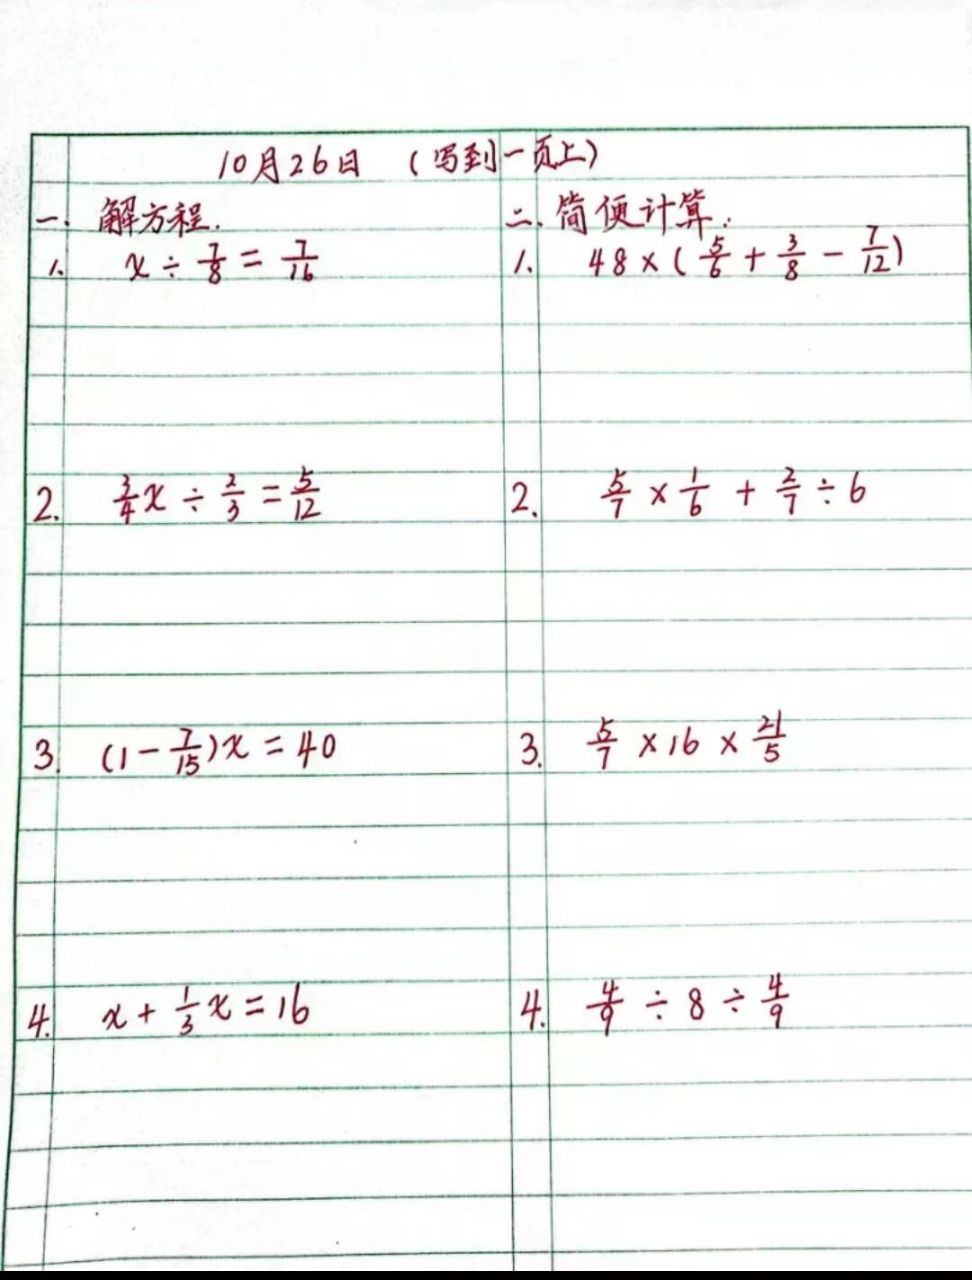 10月26日 (写到一页上)
一. 解方程.
1. x ÷ 7/8 = 7/16
2. 3/4 x ÷ 2/3 = 5/12
3. (1 - 7/15)x = 40
4. x + 1/3 x = 16
二. 简便计算:
1. 48 × (5/6 + 3/8 - 7/12)
2. 5/7 × 1/6 + 2/7 ÷ 6
3. 5/7 × 16 × 21/5
4. 4/9 ÷ 8 ÷ 4/9